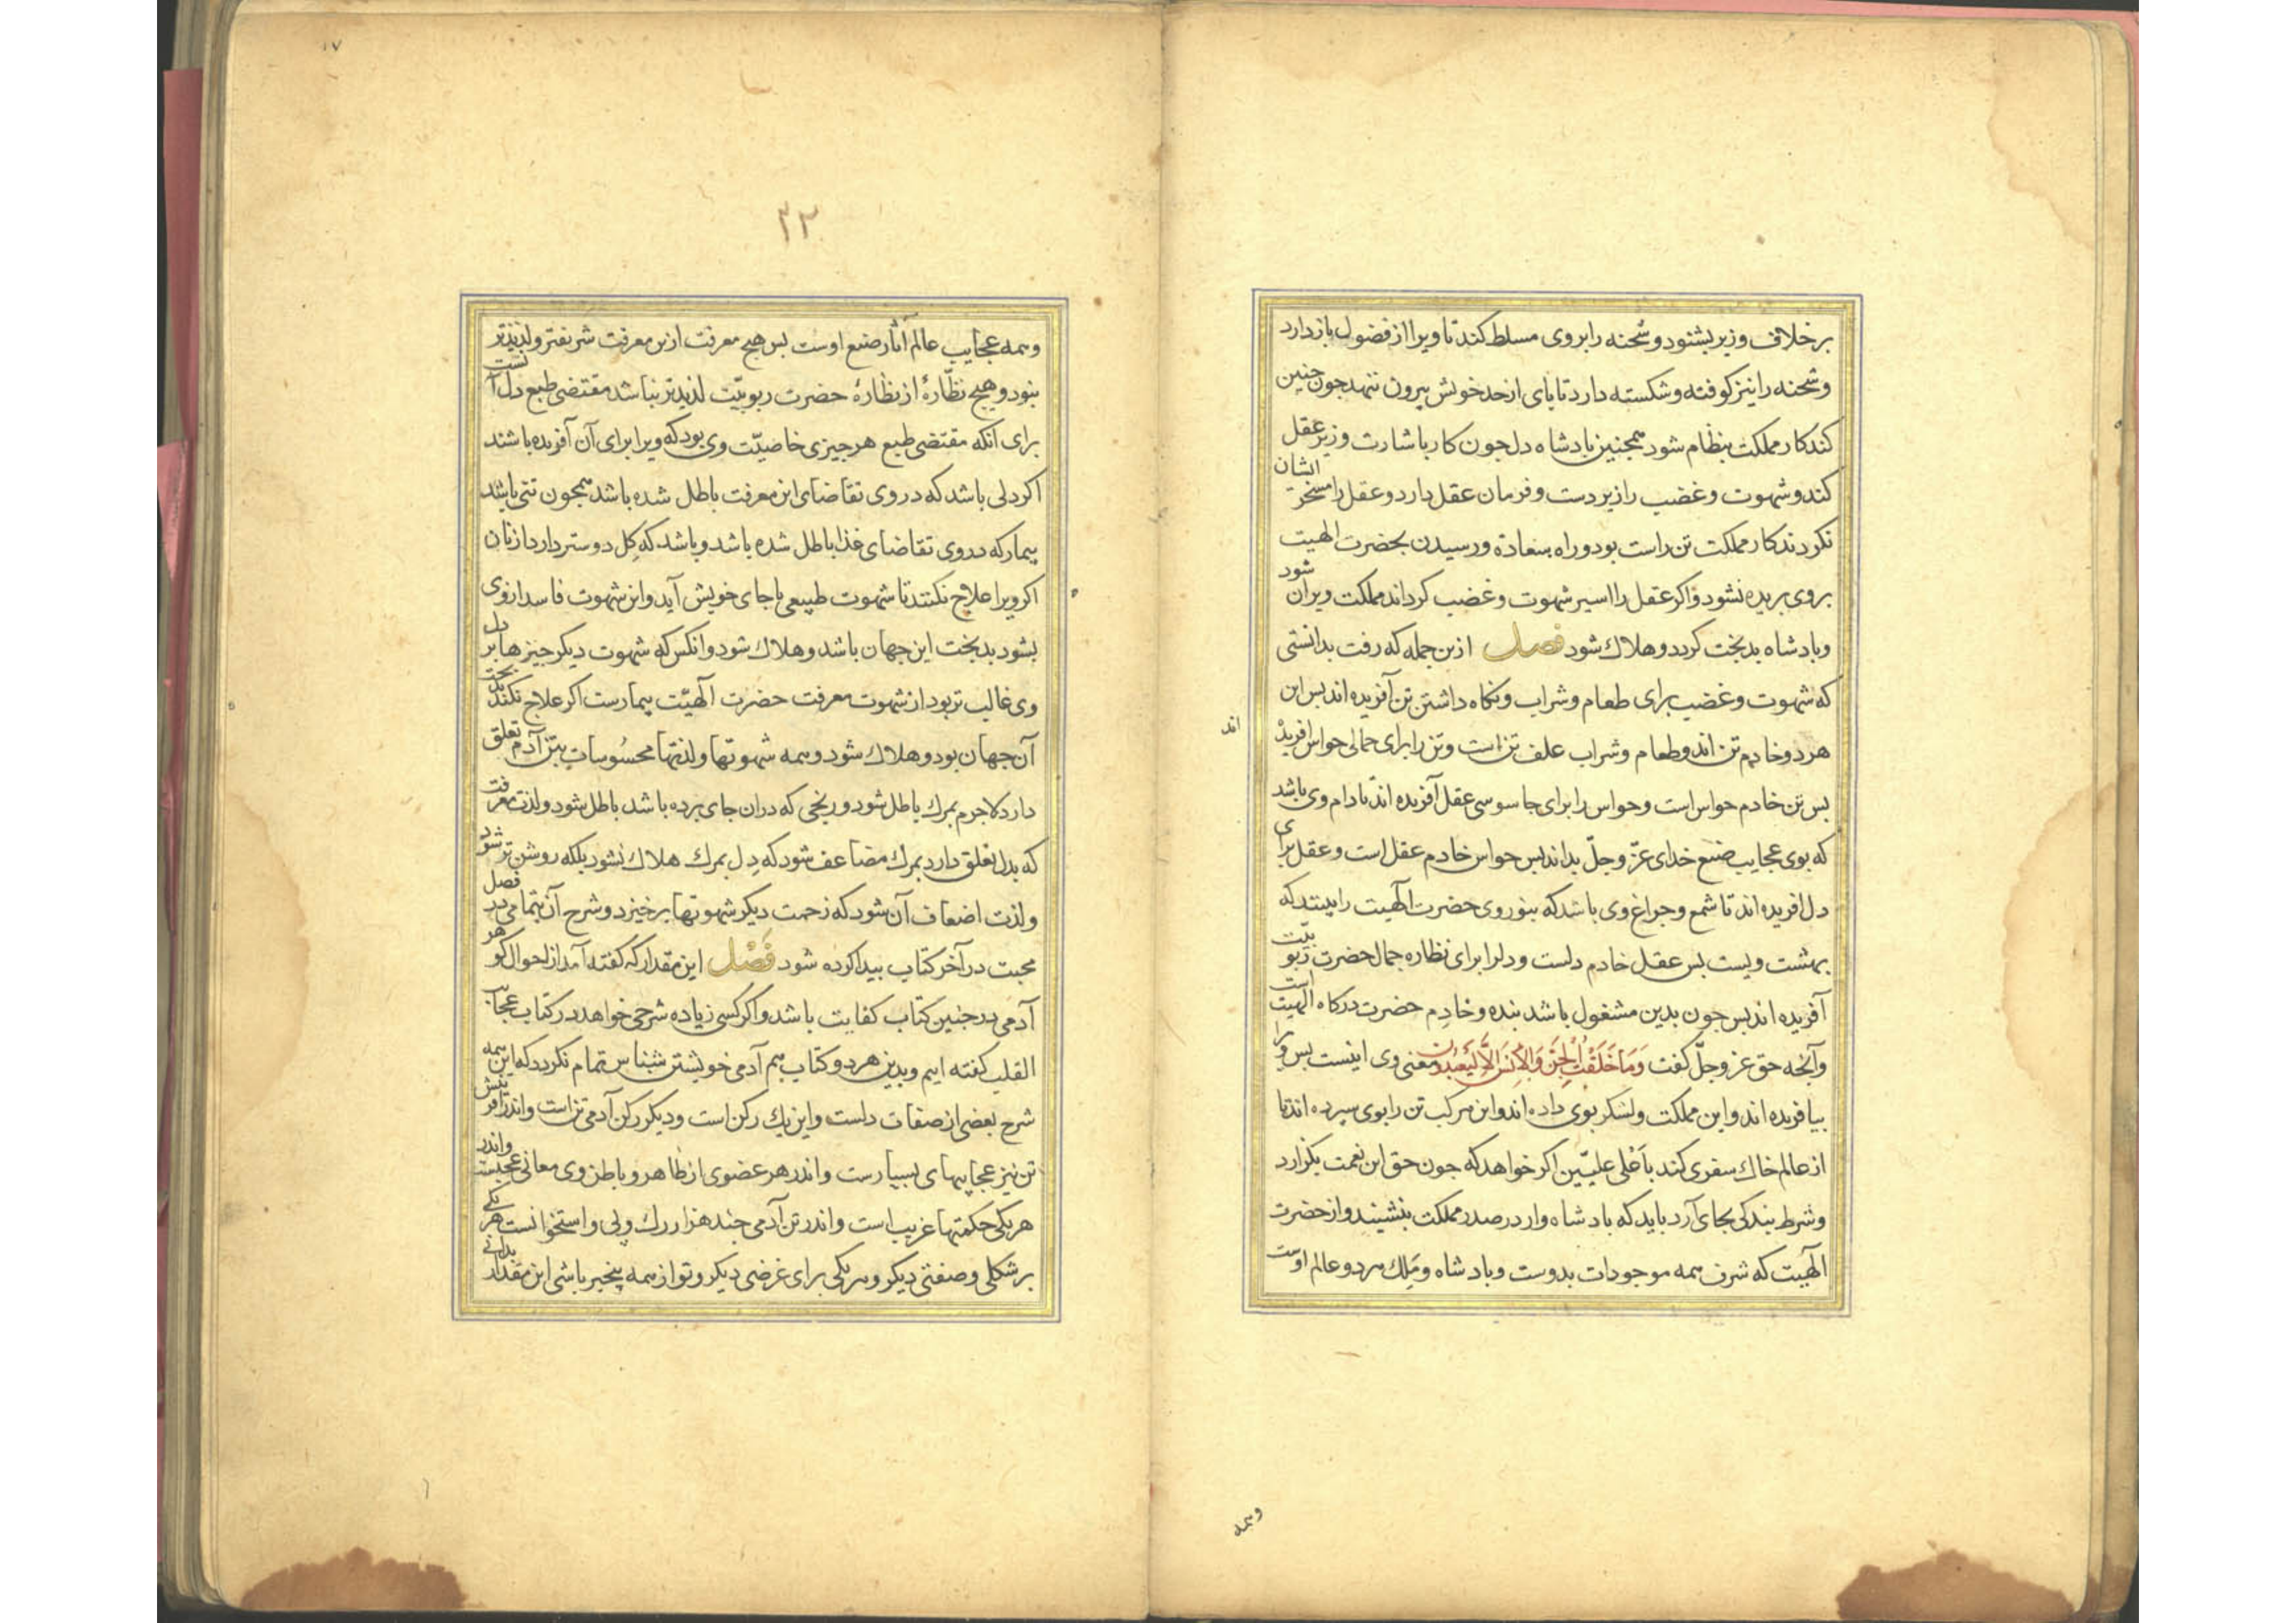 برخلاف وزیر بشنود و شحنه را بروی مسلط کند تا ویرا از فضول باز دارد
و شحنه را نیز کوفته و شکسته دارد تا پای از حد خویش بیرون ننهد جون جنین
کند کار مملکت بنظام شود همجنین پادشاه دل جون کار باشارت وزیر عقل
کند و شهوت و غضب را زیر دست و فرمان عقل دارد و عقل را مسخر ایشان
نکردند کار مملکت تن راست بود و راه سعادة و رسیدن بحضرت الهیت
بروی بریده نشود و اکر عقل را اسیر شهوت و غضب کرداند مملکت ویران شود
و پادشاه بدبخت کردد و هلاک شود فصل ازین جمله که رفت بدانستی
که شهوت و غضب برای طعام و شراب و نکاه داشتن تن آفریده اند بس این
هر دو خادم تن اند و طعام و شراب علف تن است و تن را برای حمالی حواس افریده
اند
بس تن خادم حواس است و حواس را برای جاسوسی عقل آفریده اند تا دام وی باشد
که بوی عجایب صنع خدای عزّ و جلّ بداند بس حواس خادم عقل است و عقل برای
دل افریده اند تا شمع و جراغ وی باشد که بنور وی حضرت الهیت را بیند که
بهشت ویست بس عقل خادم دلست و دل را برای نظاره جمال حضرت ربوبیّت
آفریده اند بس جون بدین مشغول باشد بنده و خادم حضرت درکاه الهیت است
و آنجه حق عز و جلّ کفت وَمَا خَلَقْتُ الْجِنَّ وَالْإِنسَ إِلَّا لِيَعْبُدُونِ معنی وی اینست بس ویرا
بیافریده اند و این مملکت و لشکر بوی داده اند و این مرکب تن را بوی سپرده اند تا
از عالم خاک سفری کند باَعْلی علیّین اکر خواهد که جون حق این نعمت بکزارد
و شرط بندکی بجای آرد باید که پادشاه وار در صدر مملکت بنشیند و از حضرت
الهیت که شرف همه موجودات بدوست و پادشاه و مَلِک هر دو عالم اوست
وهمه
۱۷
۲۲
وهمه عجایب عالم آثار صنع اوست بس هیج معرفت ازین معرفت شریفتر و لذیذتر
بنود و هیج نظّارهٔ از نظارهٔ حضرت ربوبیّت لذیذتر نباشد مقتضی طبع دل آنست
برای آنکه مقتضی طبع هر جیزی خاصیّت وی بود که ویرا برای آن آفریده باشند
اکر دلی باشد که در وی تقاضای این معرفت باطل شده باشد همجون تنی باشد
بیمار که در وی تقاضای غذا باطل شده باشد و باشد که کِل دوستر دارد از نان
اکر ویرا علاج نکنند تا شهوت طبیعی باجای خویش آید و این شهوت فاسد از وی
بشود بدبخت این جهان باشد و هلاک شود و انکس که شهوت دیکر جیزها بر دل
وی غالب تر بود از شهوت معرفت حضرت الهیّت بیمارست اکر علاج نکند بدبخت
آن جهان بود و هلاک شود و همه شهوتها و لذتها محسُوسات بتن آدم تعلق
دارد لاجرم بمرک باطل شود و رنجی که در ان جای برده باشد باطل شود و لذت معرفت
که بدل تعلق دارد بمرک مضاعف شود که دِل بمرک هلاک نشود بلکه روشن تر شود
و لذت اضعاف آن شود که زحمت دیکر شهوتها برخیزد و شرح آن بتمامی در فصل
محبت در آخر کتاب بیدا کرده شود فَصْل این مقدار که کفته آمد از احوال کوهر
آدمی در جنین کتاب کفایت باشد و اکر کسی زیاده شرحی خواهد در کتاب عجایب
القلب کفته ایم و بدین هر دو کتاب هم آدمی خویشتن شناس تمام نکردد که این همه
شرح بعضی از صفات دلست و این یک رکن است و دیکر رکن آدمی تن است و اندر آفرینش
تن نیز عجایبهای بسیارست و اندر هر عضوی از ظاهر و باطن وی معانی عجیبست و اندر
هر یکی حکمتها غریب است و اندر تن آدمی جند هزار رک و پی و استخوانست هر یکی
بر شکلی و صفتی دیکر و هر یکی برای غرضی دیکر و تو از همه بیخبر باشی این مقدار بدانی